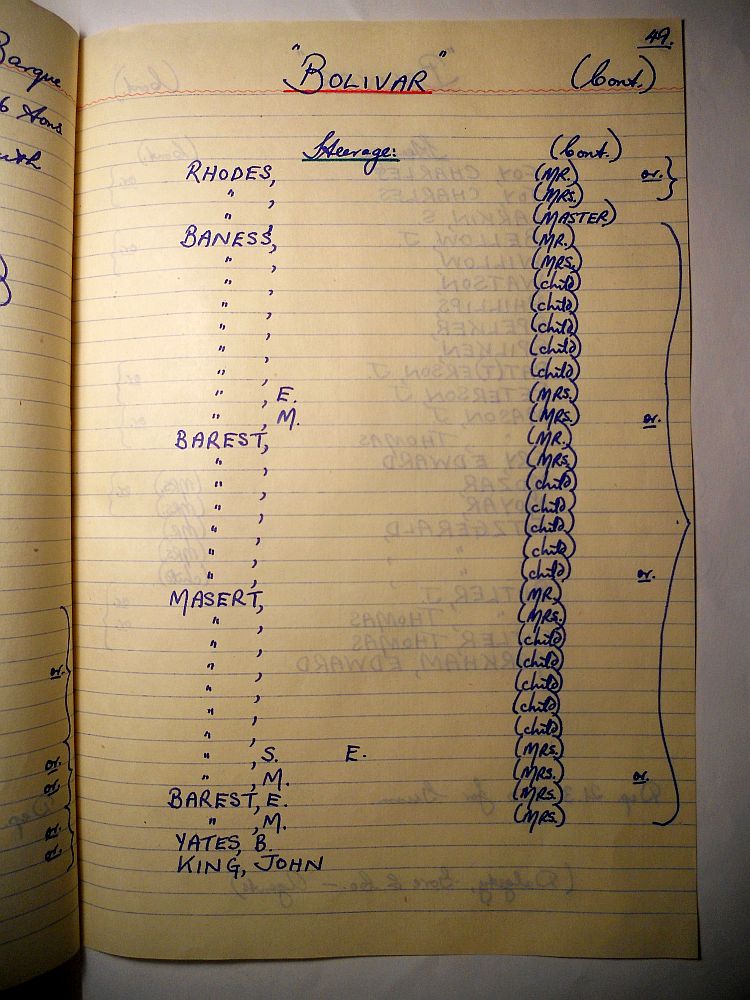 49.
"BOLIVAR" (Cont.)
Steerage: (Cont.)
RHODES, (MR.) or.
" , (MRS.)
" , (MASTER)
BANESS, (MR.)
" , (MRS.)
" , (child)
" , (child)
" , (child)
" , (child)
" , (child)
" , E. (MRS.)
" , M. (MRS.) or.
BAREST, (MR.)
" , (MRS.)
" , (child)
" , (child)
" , (child)
" , (child)
" , (child) or.
MASERT, (MR.)
" , (MRS.)
" , (child)
" , (child)
" , (child)
" , (child)
" , (child)
" , S. E. (MRS.)
" , M. (MRS.) or.
BAREST, E. (MRS.)
" , M. (MRS.)
YATES, B.
KING, JOHN
Barque
6 Tons
or.
or.
or.
or.
or.